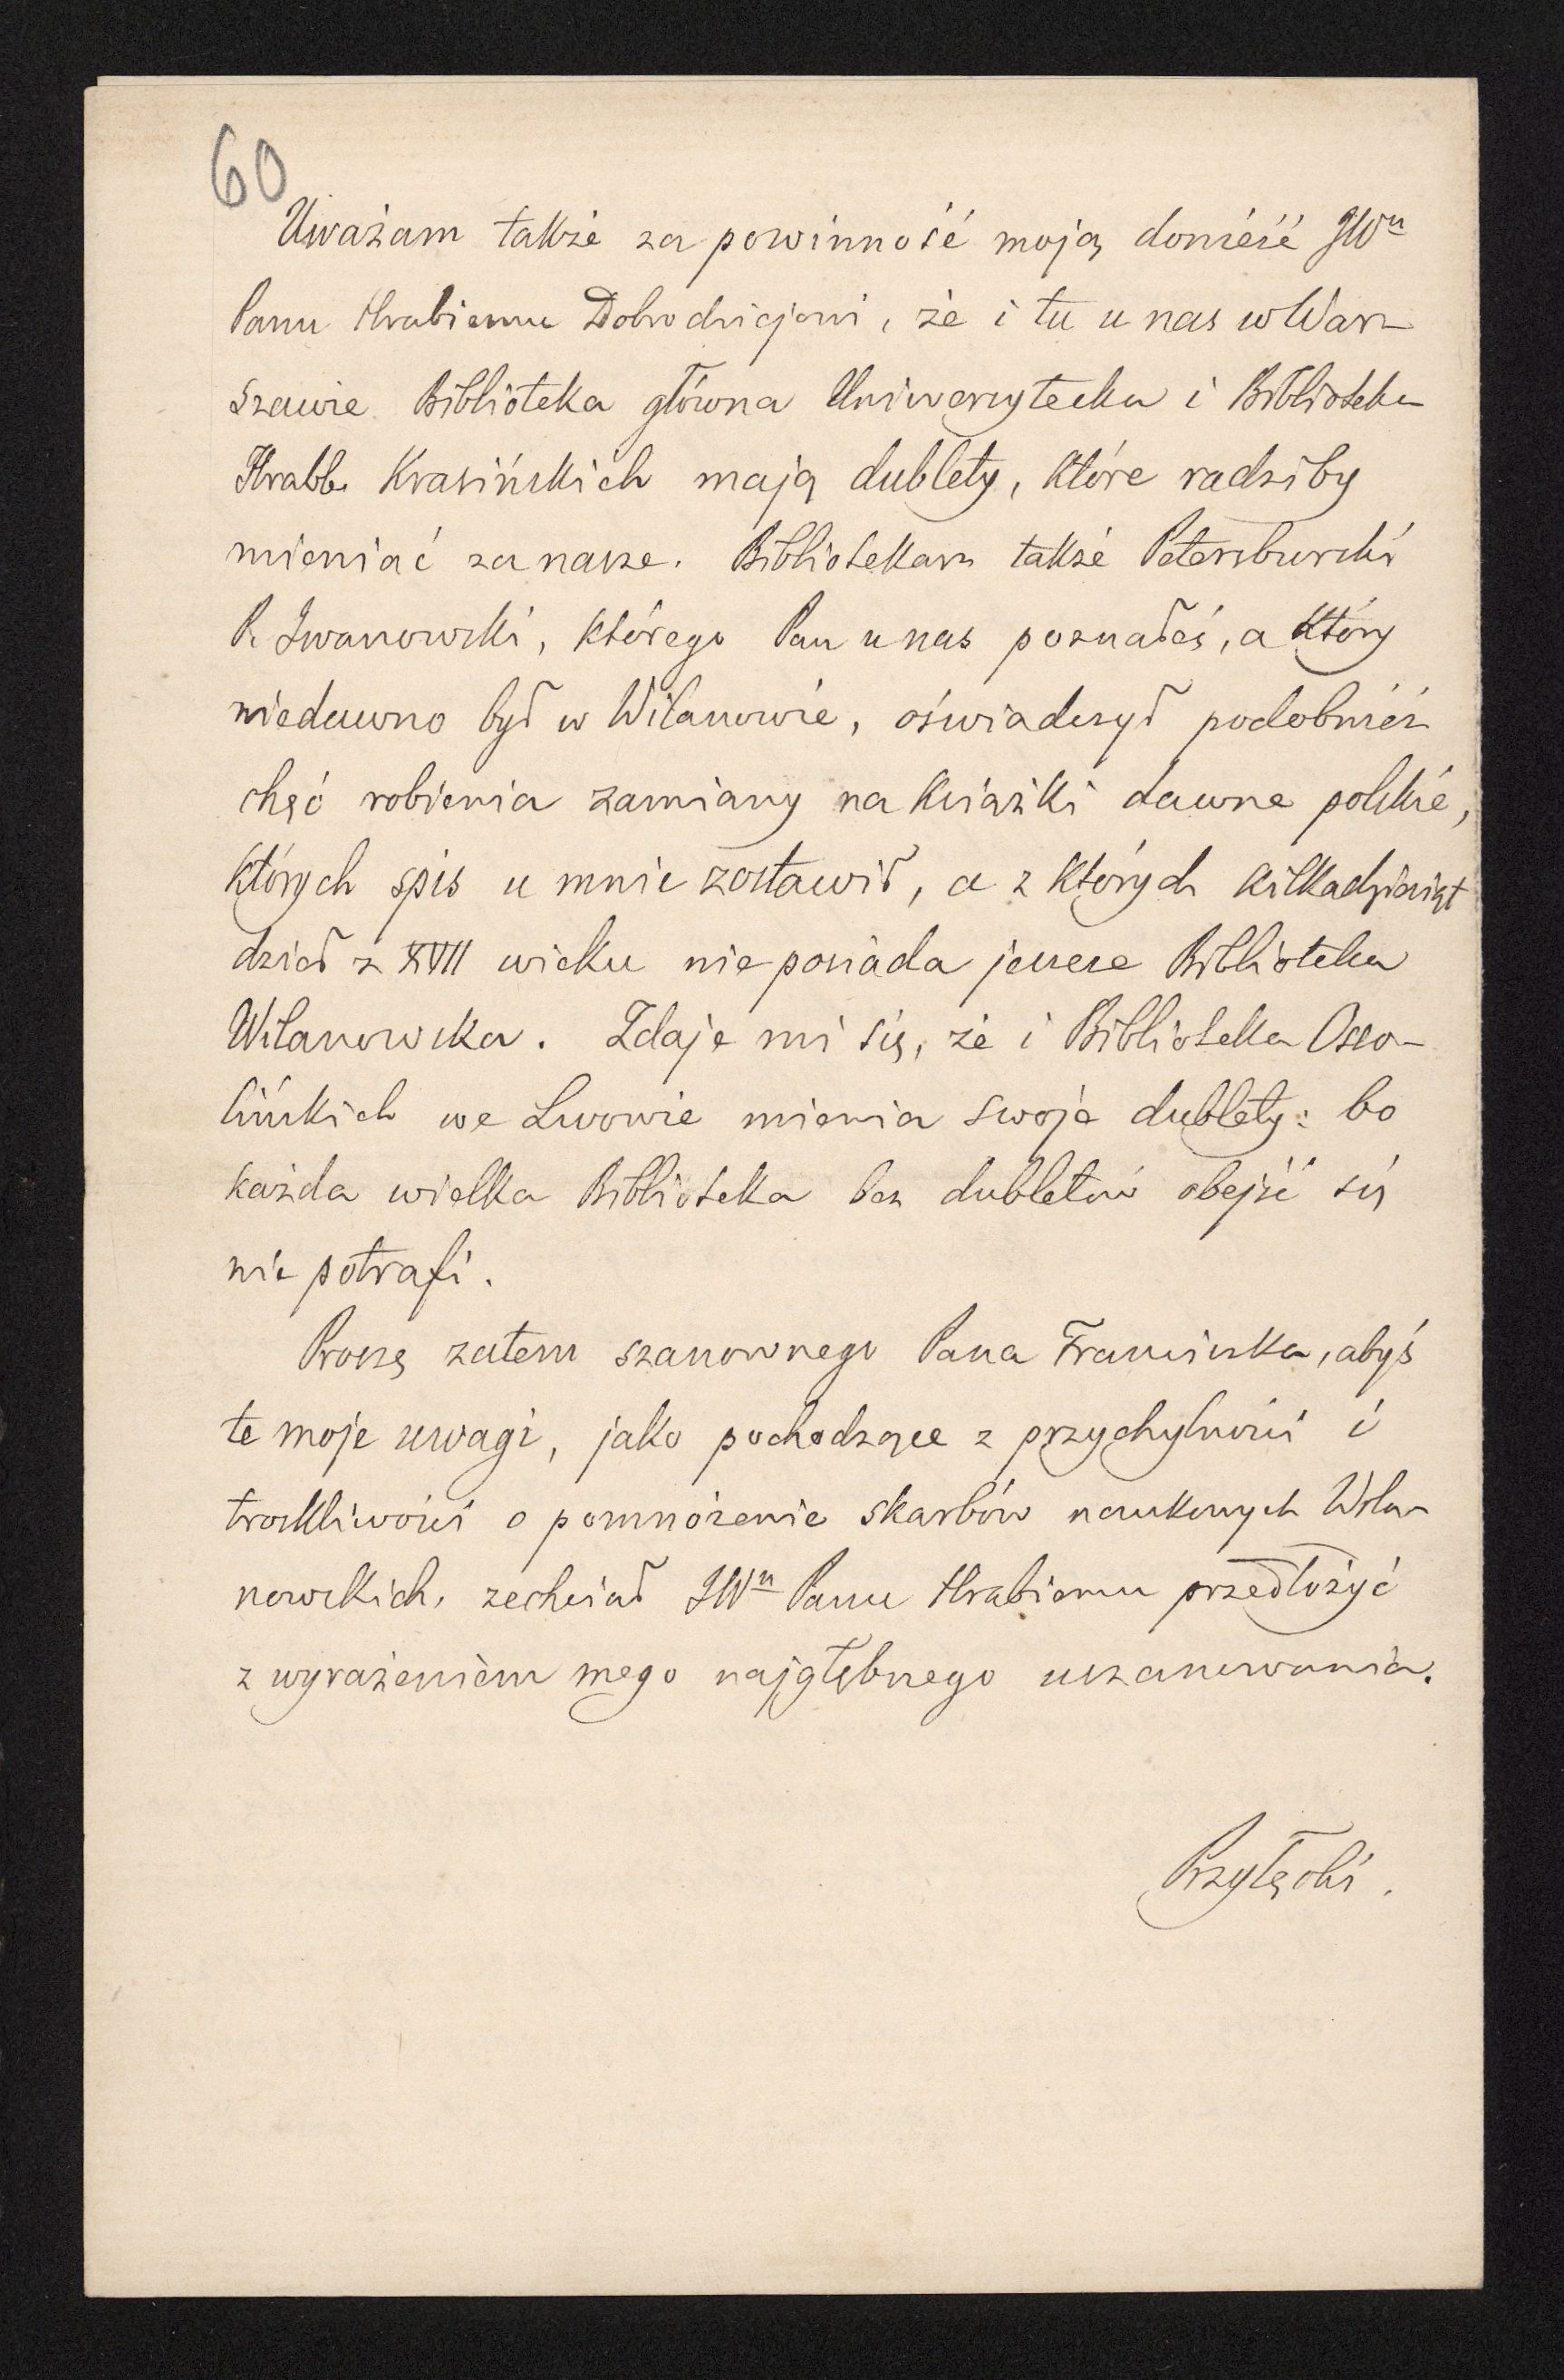 60
Uważam także za powinność moją donieść JWu
Panu Hrabiemu Dobrodziejowi, że i tu u nas w War-
szawie Biblioteka główna Uniwersytecka i Biblioteka
Hrabb. Krasińskich mają dublety, które radziby
mieniać za nasze. Bibliotekarz także Petersburski
P. Iwanowski, którego Pan u nas poznałeś, a który
niedawno był w Wilanowie, oświadczył podobnież
chęć robienia zamiany na książki dawne polskie,
których spis u mnie zostawił, a z których kilkadziesiąt
dzieł z XVII wieku nie posiada jeszcze Biblioteka
Wilanowska. Zdaje mi się, że i Biblioteka Osso-
lińskich we Lwowie mienia swoje dublety: bo
każda wielka Biblioteka bez dubletów obejść się
nie potrafi.
Proszę zatem szanownego Pana Franciszka, abyś
te moje uwagi, jako pochodzące z przychylności i
troskliwości o pomnożenie skarbów naukowych Wila-
nowskich, zechciał JWu Panu Hrabiemu przedłożyć
z wyrażeniem mego najgłębszego uszanowania.
Przyłęcki.